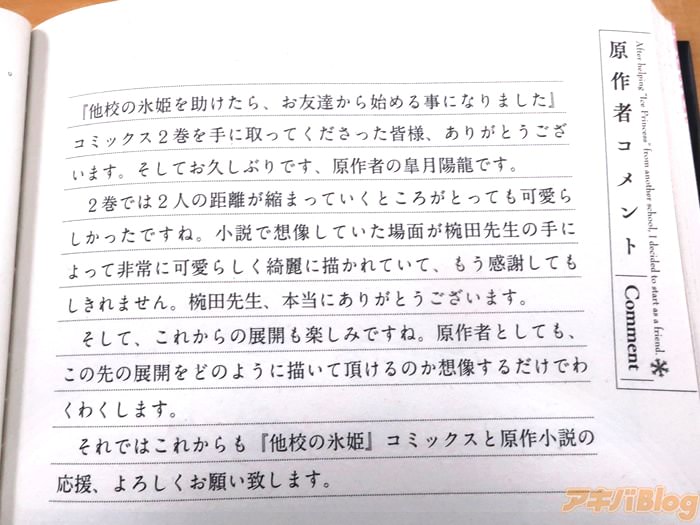 『他校の氷姫を助けたら、お友達から始める事になりました』
コミックス２巻を手に取ってくださった皆様、ありがとうござ
います。そしてお久しぶりです、原作者の皐月陽龍です。
２巻では２人の距離が縮まっていくところがとっても可愛ら
しかったですね。小説で想像していた場面が椀田先生の手に
よって非常に可愛らしく綺麗に描かれていて、もう感謝しても
しきれません。椀田先生、本当にありがとうございます。
そして、これからの展開も楽しみですね。原作者としても、
この先の展開をどのように描いて頂けるのか想像するだけでわ
くわくします。
それではこれからも『他校の氷姫』コミックスと原作小説の
応援、よろしくお願い致します。
After helping "Ice Princess" from another school, I decided to start as a friend.
原作者コメント Comment
アキバBlog